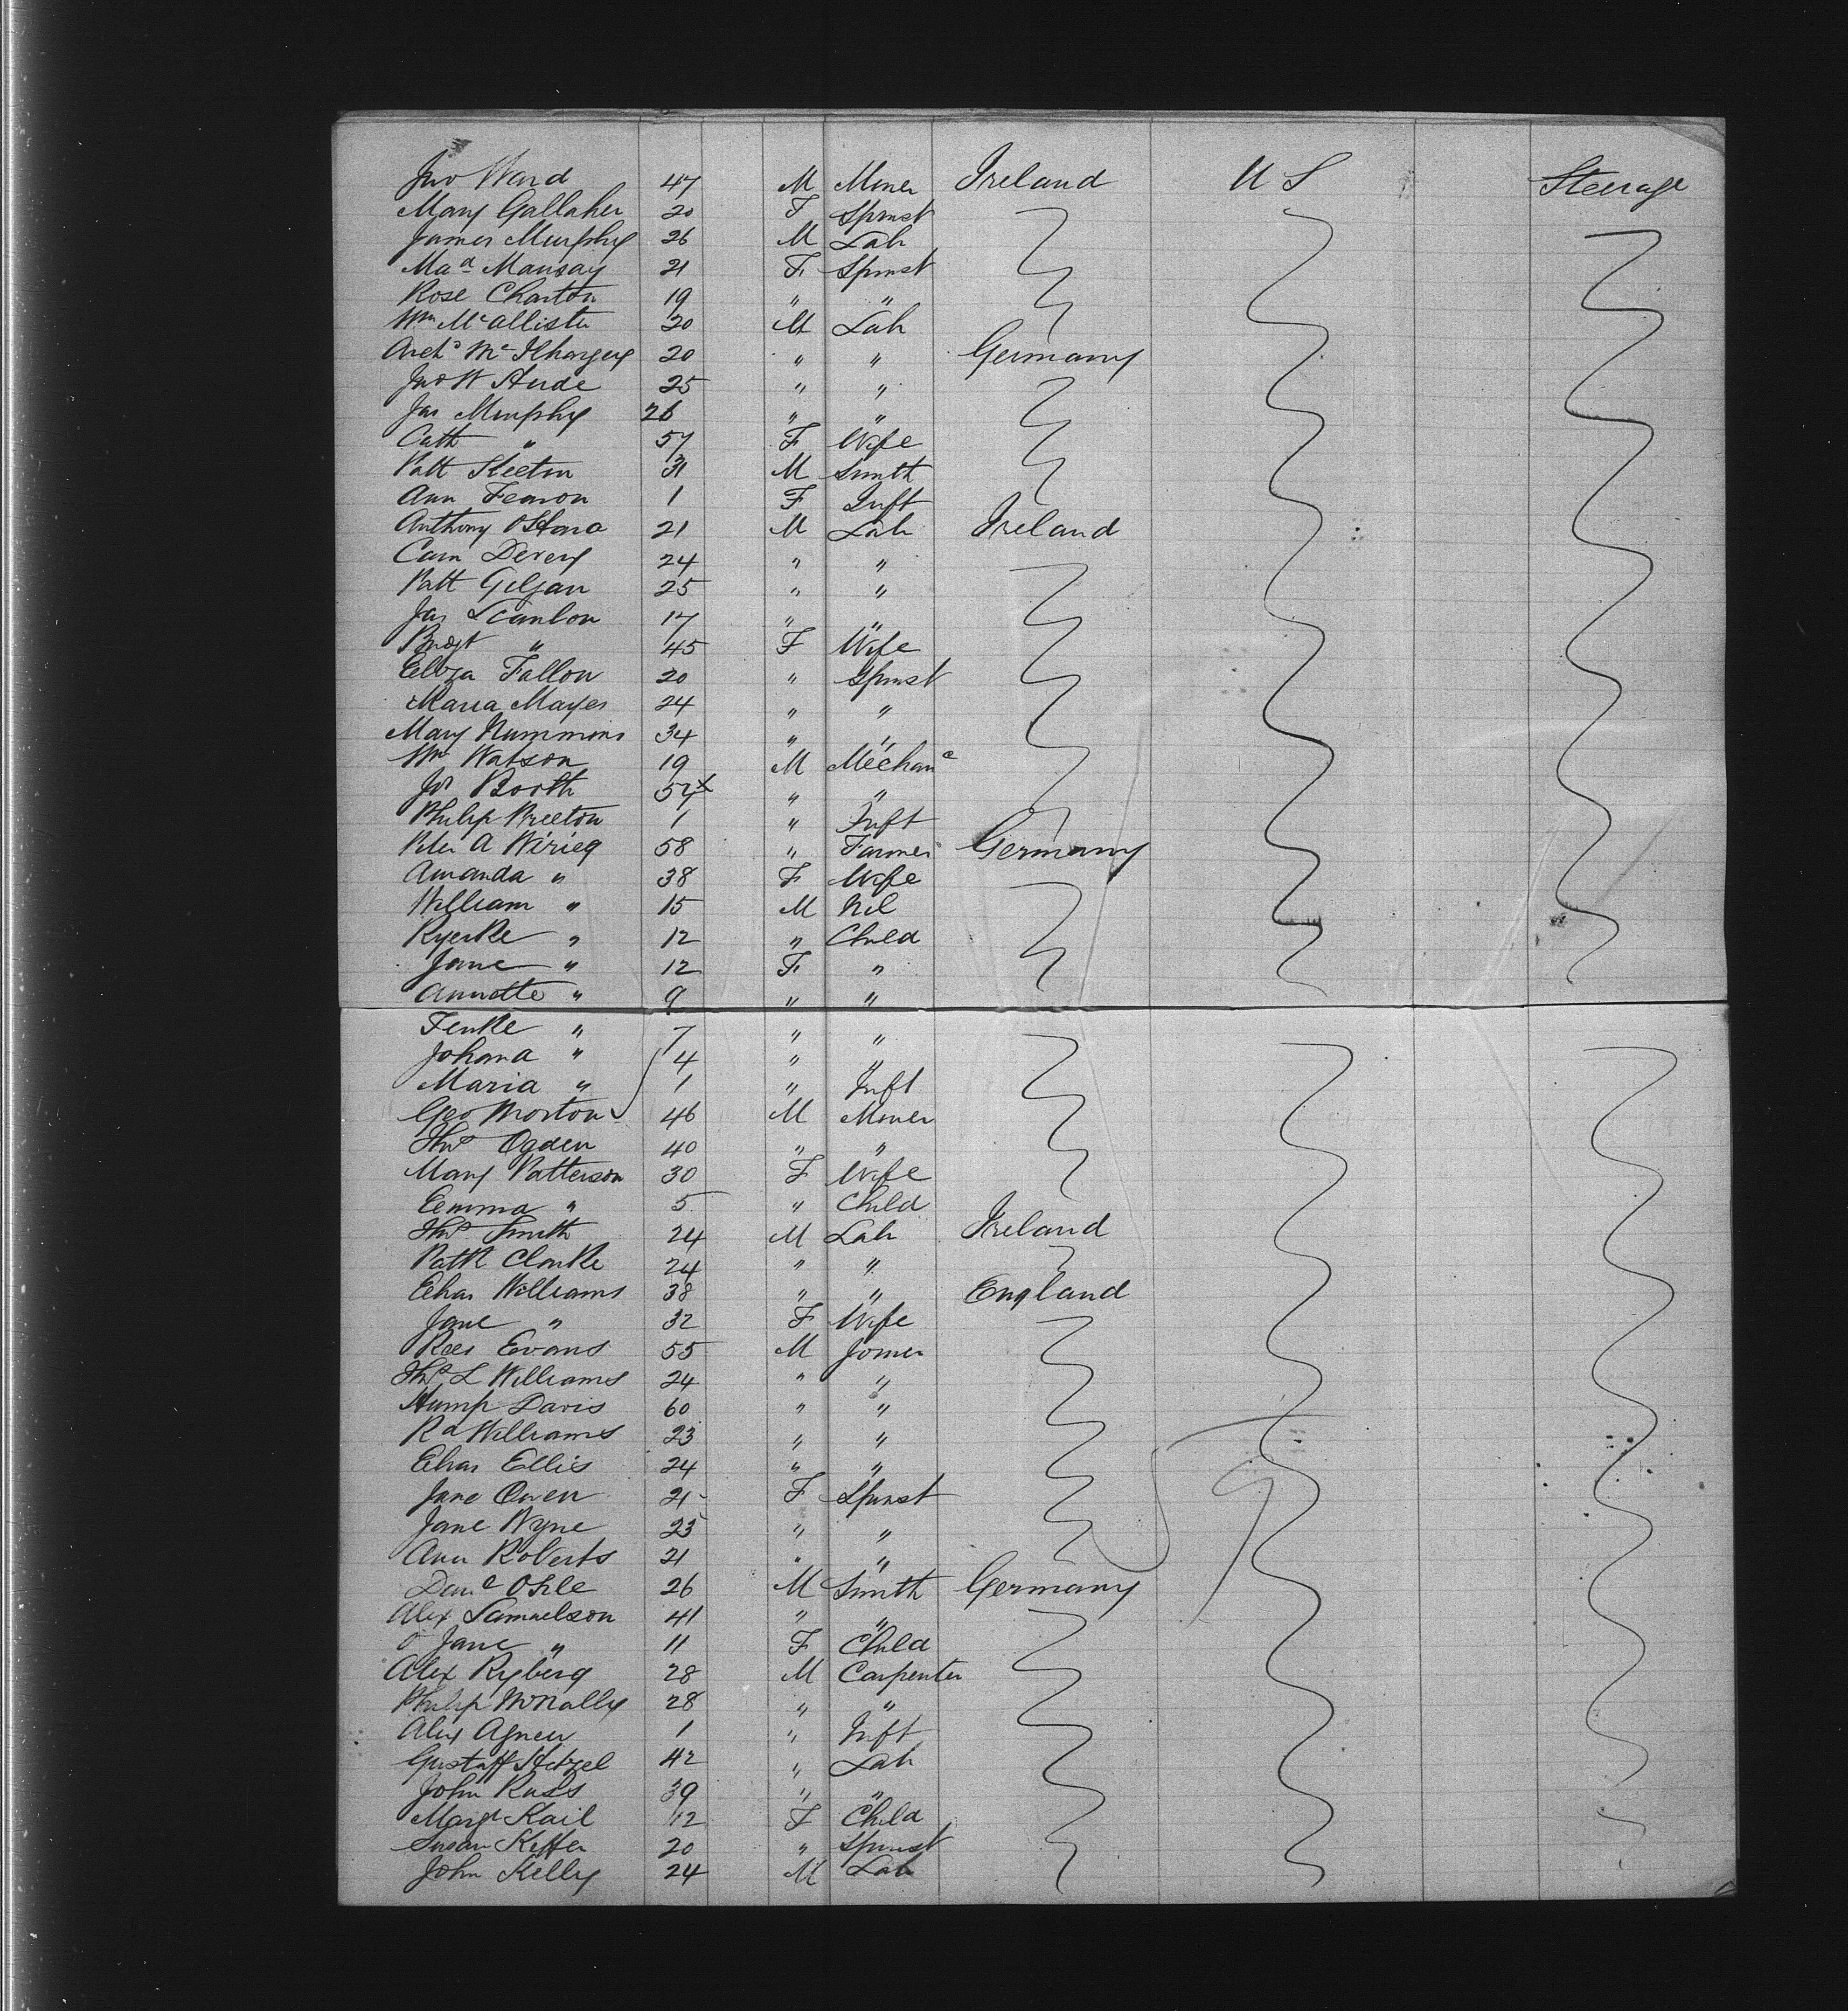 Jno Ward 47 M Miner Ireland U S Steerage
Mary Gallaher 20 F Spinst
James Murphy 26 M Lab
Mad Mausay 21 F Spinst
Rose Charton 19 " "
Wm McAllister 20 M Lab
Archd Mc 20 " " Germany
Jno W Hude 25 " "
Jas Murphy 26 " "
Cath " 57 F Wife
Patt Skeeton 31 M Smith
Ann Fearon 1 F Inft
Anthony OHara 21 M Lab Ireland
Cam Devery 24 " "
Patt Gilgan 25 " "
Jas Scanlon 17 " "
Bridgt " 45 F Wife
Eliza Fallon 20 " Spinst
Maria Mayes 24 " "
Mary Nummins 34 " "
Wm Watson 19 M Mechanc
Js Booth 57 x " "
Philip Breeton 1 " Inft
Peter A Wirieg 58 " Farmer Germany
Amanda " 38 F Wife
William " 15 M Nil
Ryerke " 12 " Child
Jane " 12 F "
Annette " 9 " "
Fenke " 7 " "
Johana " 4 " "
Maria " 1 " Inft
Geo Morton 46 M Miner
Thos Ogden 40 " "
Mary Patterson 30 F Wife
Emma " 5 " Child
Thos Smith 24 M Lab Ireland
Patk Clarke 24 " "
Chas Williams 38 " " England
Jane " 32 F Wife
Rees Evans 55 M Joiner
Thos L Williams 24 " "
Hump Davis 60 " "
Rd Williams 23 " "
Chas Ellis 24 " "
Jane Owen 21 F Spinst
Jane Wyne 23 " "
Ann Roberts 21 " "
Danl Ohle 26 M Smith Germany
Alex Samuelson 41 " "
Jane " 11 F Child
Alex Ryberg 28 M Carpenter
Philip McNally 28 " "
Alex Agnew 1 " Inft
Gustaff Hetzel 42 " Lab
John Russ 39 " "
Margt Kail 12 F Child
Susan Keffer 20 " Spinst
John Kelly 24 M Lab